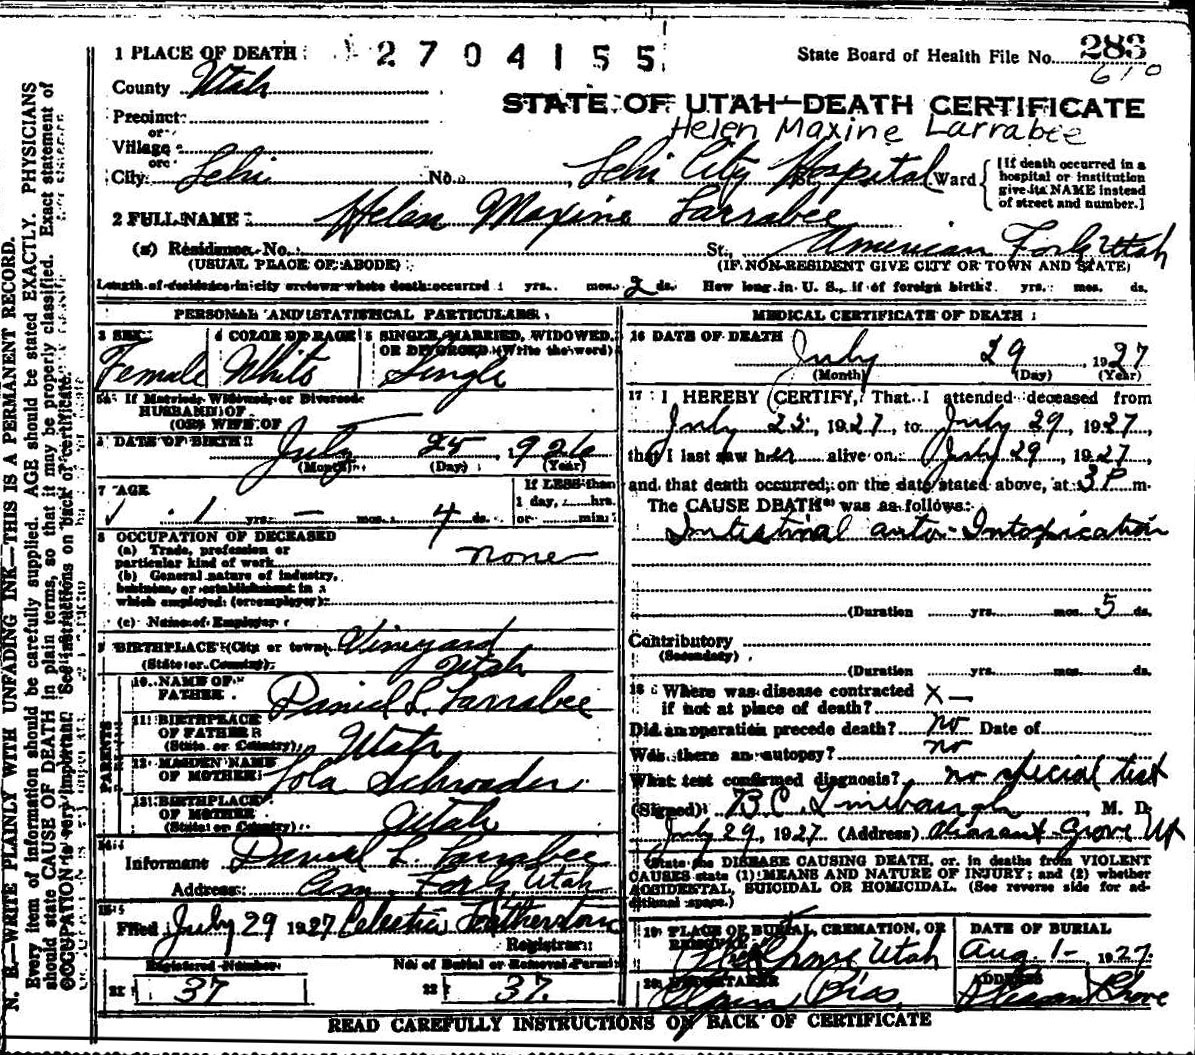 1 PLACE OF DEATH
2704155
State Board of Health File No. 283
610
County Utah
STATE OF UTAH—DEATH CERTIFICATE
Helen Maxine Larrabee
Precinct
or
Village
or
City Lehi No. Lehi City Hospital Ward
[If death occurred in a hospital or institution give its NAME instead of street and number.]
2 FULL NAME Helen Maxine Larrabee
(a) Residence No. St., American Fork Utah
(USUAL PLACE OF ABODE) (IF NON-RESIDENT GIVE CITY OR TOWN AND STATE)
Length of residence in city or town where death occurred yrs. mos. 2 ds. How long in U. S., if of foreign birth? yrs. mos. ds.
PERSONAL AND STATISTICAL PARTICULARS
3 SEX
Female
4 COLOR OR RACE
White
5 SINGLE, MARRIED, WIDOWED, OR DIVORCED (Write the word)
Single
5a If Married, Widowed, or Divorced
HUSBAND OF
(OR) WIFE OF
6 DATE OF BIRTH July 25, 1926
(Month) (Day) (Year)
7 AGE
1 yrs. — mos. 4 ds.
If LESS than
1 day, hrs.
or min.
8 OCCUPATION OF DECEASED
(a) Trade, profession or
particular kind of work none
(b) General nature of industry,
business, or establishment in
which employed (or employer)
(c) Name of Employer
9 BIRTHPLACE (City or town) Vineyard
(State or Country) Utah
PARENTS
10 NAME OF
FATHER Daniel L. Larrabee
11 BIRTHPLACE
OF FATHER
(State or Country) Utah
12 MAIDEN NAME
OF MOTHER Lola Schroader
13 BIRTHPLACE
OF MOTHER
(State or Country) Utah
14
Informant Daniel L. Larrabee
Address Am. Fork Utah
15
Filed July 29 1927 Celestia
Registrar
Registered Number
21 37
No. of Burial or Removal Permit
22 37
MEDICAL CERTIFICATE OF DEATH
16 DATE OF DEATH
July 29, 1927
(Month) (Day) (Year)
17 I HEREBY CERTIFY, That I attended deceased from
July 25, 1927, to July 29, 1927,
that I last saw her alive on July 29, 1927
and that death occurred, on the date stated above, at 3 P m.
The CAUSE DEATH* was as follows:
Intestinal auto-Intoxication
(Duration yrs. mos. 5 ds.
Contributory
(Secondary)
(Duration yrs. mos. ds.
18 Where was disease contracted
if not at place of death? X —
Did an operation precede death? no Date of
Was there an autopsy? no
What test confirmed diagnosis? no special test
(Signed) B.C. M. D.
July 29, 1927 (Address) Pleasant Grove Ut
(State the DISEASE CAUSING DEATH, or, in deaths from VIOLENT
CAUSES state (1) MEANS AND NATURE OF INJURY; and (2) whether
ACCIDENTAL, SUICIDAL OR HOMICIDAL. (See reverse side for ad-
ditional space.)
19 PLACE OF BURIAL, CREMATION, OR
REMOVAL Utah
DATE OF BURIAL
Aug 1- 1927
20 UNDERTAKER
Bros.
ADDRESS
Pleasant Grove
READ CAREFULLY INSTRUCTIONS ON BACK OF CERTIFICATE
N. B.—WRITE PLAINLY WITH UNFADING INK—THIS IS A PERMANENT RECORD.
Every item of information should be carefully supplied. AGE should be stated EXACTLY. PHYSICIANS
should state CAUSE OF DEATH in plain terms, so that it may be properly classified. Exact statement of
OCCUPATION is very important. See instructions on back of certificate.